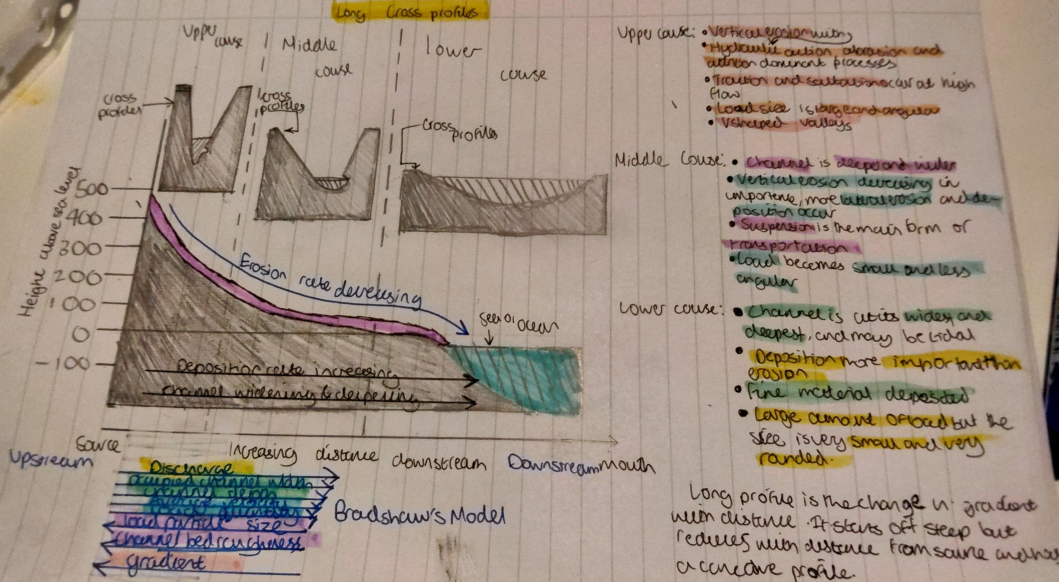 Long Cross profiles
Upper
couse
Middle
couse
lower
couse
cross
profiles
cross
profiles
cross
profiles
Height above sea level
500
400
300
200
100
0
-100
Erosion rate decresing
sea or ocean
Deposition rate increasing
channel widening & deepening
Source
Increasing distance downstream
mouth
Upstream
Downstream
Discharge
occupied channel width
channel depth
average velocity
load quantity
load particle size
channel bed roughness
gradient
Bradshaw's Model
Upper couse: • Vertical erosion with
• Hydraulic action, abrasion and
attrition dominant processes
• Traction and saltation occur at high
flow
• Load size is large and angular
• V shaped valleys
Middle couse: • Channel is deeper and wider
• Vertical erosion decresing in
importance, more lateral erosion and de-
position occur
• Suspension is the main form of
transportation
• Load becomes small and less
angular
Lower couse: • Channel is at its widest and
deepest, and may be tidal
• Deposition more important than
erosion
• Fine material deposited
• Large amount of load but the
size is very small and very
rounded.
Long profile is the change in gradient
with distance. It starts off steep but
reduces with distance from source and has
a concave profile.